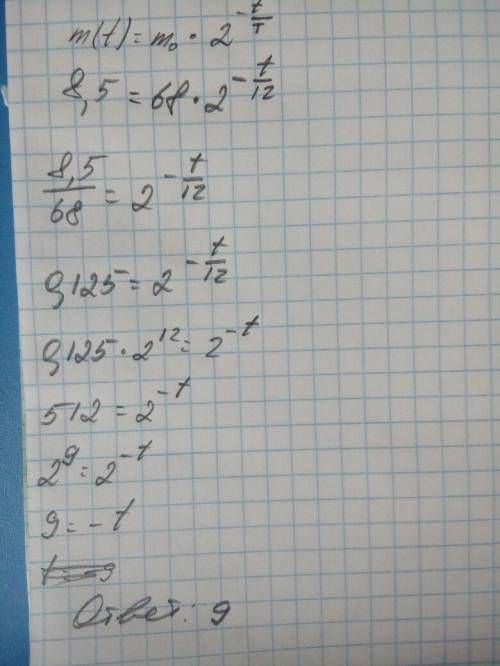 m(t) = m₀ · 2^(-t/T)
8,5 = 68 · 2^(-t/12)
8,5/68 = 2^(-t/12)
0,125 = 2^(-t/12)
0,125 · 2^12 = 2^(-t)
512 = 2^(-t)
2^9 = 2^(-t)
9 = -t
Ответ: 9